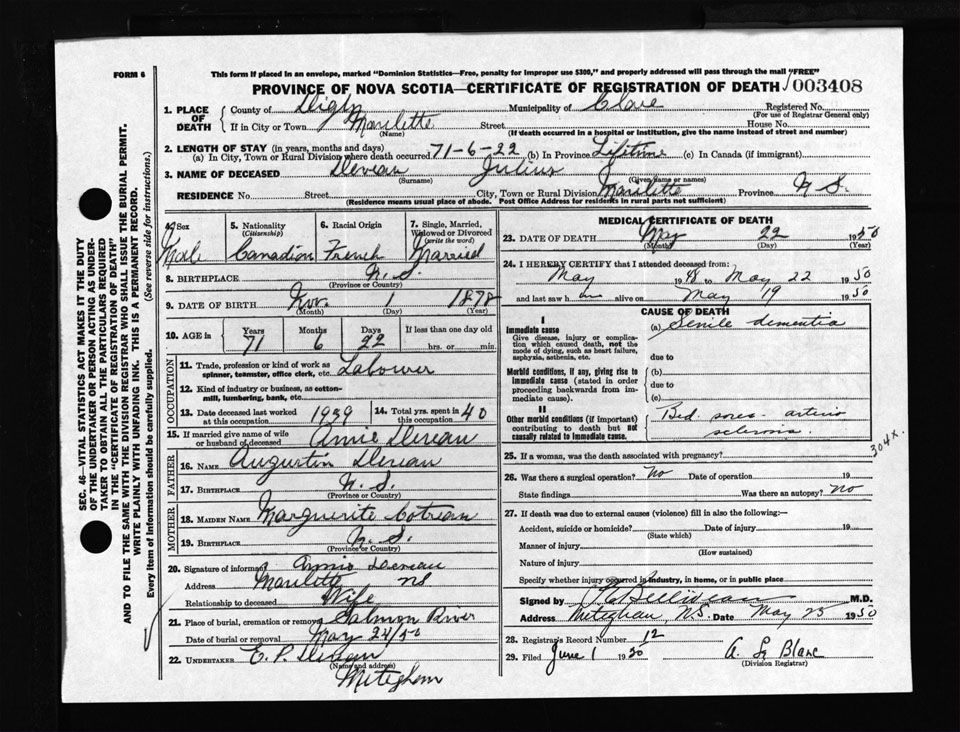 FORM 6
This form if placed in an envelope, marked "Dominion Statistics—Free, penalty for improper use $300," and properly addressed will pass through the mail "FREE"
PROVINCE OF NOVA SCOTIA—CERTIFICATE OF REGISTRATION OF DEATH 003408
1. PLACE OF DEATH { County of Digby Municipality of Clare Registered No.
(For use of Registrar General only)
If in City or Town Mavilette Street House No.
(Name) (If death occurred in a hospital or institution, give the name instead of street and number)
2. LENGTH OF STAY (in years, months and days)
(a) In City, Town or Rural Division where death occurred 71-6-22 (b) In Province Lifetime (c) In Canada (if immigrant)
3. NAME OF DECEASED Deveau Julius
(Surname) (Given name or names)
RESIDENCE No. Street City, Town or Rural Division Mavilette Province N S.
(Residence means usual place of abode. Post Office Address for residents in rural parts not sufficient)
4. Sex Male
5. Nationality (Citizenship) Canadian
6. Racial Origin French
7. Single, Married, Widowed or Divorced (write the word) Married
8. BIRTHPLACE N. S.
(Province or Country)
9. DATE OF BIRTH Nov. 1 1878
(Month) (Day) (Year)
10. AGE in { Years 71 Months 6 Days 22 If less than one day old
hrs. or min.
OCCUPATION
11. Trade, profession or kind of work as spinner, teamster, office clerk, etc. Labourer
12. Kind of industry or business, as cotton-mill, lumbering, bank, etc.
13. Date deceased last worked at this occupation 1939 14. Total yrs. spent in this occupation 40
15. If married give name of wife or husband of deceased Annie Deveau
FATHER
16. NAME Augustin Deveau
17. BIRTHPLACE N. S.
(Province or Country)
MOTHER
18. MAIDEN NAME Marguerite Cotreau
19. BIRTHPLACE N. S.
(Province or Country)
20. Signature of informant Annie Deveau
Address Mavilette NS
Relationship to deceased Wife
21. Place of burial, cremation or removal Salmon River
Date of burial or removal May 24/50
22. UNDERTAKER E. P. Deveau
(Name and address)
Meteghan
MEDICAL CERTIFICATE OF DEATH
23. DATE OF DEATH May 22 1950
(Month) (Day) (Year)
24. I HEREBY CERTIFY that I attended deceased from:
May 1948 to May 22 1950
and last saw h im alive on May 19 1950
CAUSE OF DEATH
I
Immediate cause
Give disease, injury or complication which caused death, not the mode of dying, such as heart failure, asphyxia, asthenia, etc.
(a) Senile dementia
due to
Morbid conditions, if any, giving rise to immediate cause (stated in order proceeding backwards from immediate cause).
(b)
due to
(c)
II
Other morbid conditions (if important) contributing to death but not causally related to immediate cause.
Bed sores - arterio
sclerosis
304x.
25. If a woman, was the death associated with pregnancy?
26. Was there a surgical operation? No Date of operation 19
State findings Was there an autopsy? No
27. If death was due to external causes (violence) fill in also the following:—
Accident, suicide or homicide? Date of injury 19
(State which)
Manner of injury
(How sustained)
Nature of injury
Specify whether injury occurred in industry, in home, or in public place
Signed by Belliveau M.D.
Address Meteghan, N.S. Date May 25 1950
28. Registrar's Record Number 12
29. Filed June 1 1950 A. L Blanc
(Division Registrar)
SEC. 46—VITAL STATISTICS ACT MAKES IT THE DUTY
OF THE UNDERTAKER OR PERSON ACTING AS UNDER-
TAKER TO OBTAIN ALL THE PARTICULARS REQUIRED
IN THE "CERTIFICATE OF REGISTRATION OF DEATH"
AND TO FILE THE SAME WITH THE DIVISION REGISTRAR WHO SHALL ISSUE THE BURIAL PERMIT.
WRITE PLAINLY WITH UNFADING INK. THIS IS A PERMANENT RECORD.
Every item of Information should be carefully supplied. (See reverse side for instructions.)